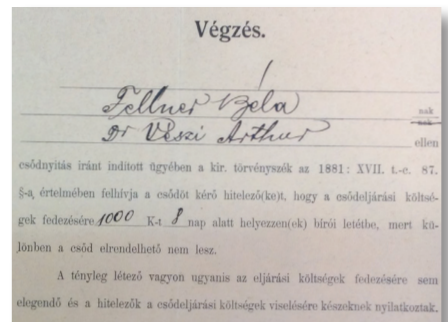 Végzés.
Fellner Béla
nak
Dr Vészi Arthur
nak
ellen
csődnyitás iránt inditott ügyében a kir. törvényszék az 1881: XVII. t.-c. 87.
§-a, értelmében felhivja a csődöt kérő hitelező(ke)t, hogy a csődeljárási költsé-
gek fedezésére 1000 K-t 8 nap alatt helyezzen(ek) birói letétbe, mert kü-
lönben a csőd elrendelhető nem lesz.
A tényleg létező vagyon ugyanis az eljárási költségek fedezésére sem
elegendő és a hitelezők a csődeljárási költségek viselésére készeknek nyilatkoztak.